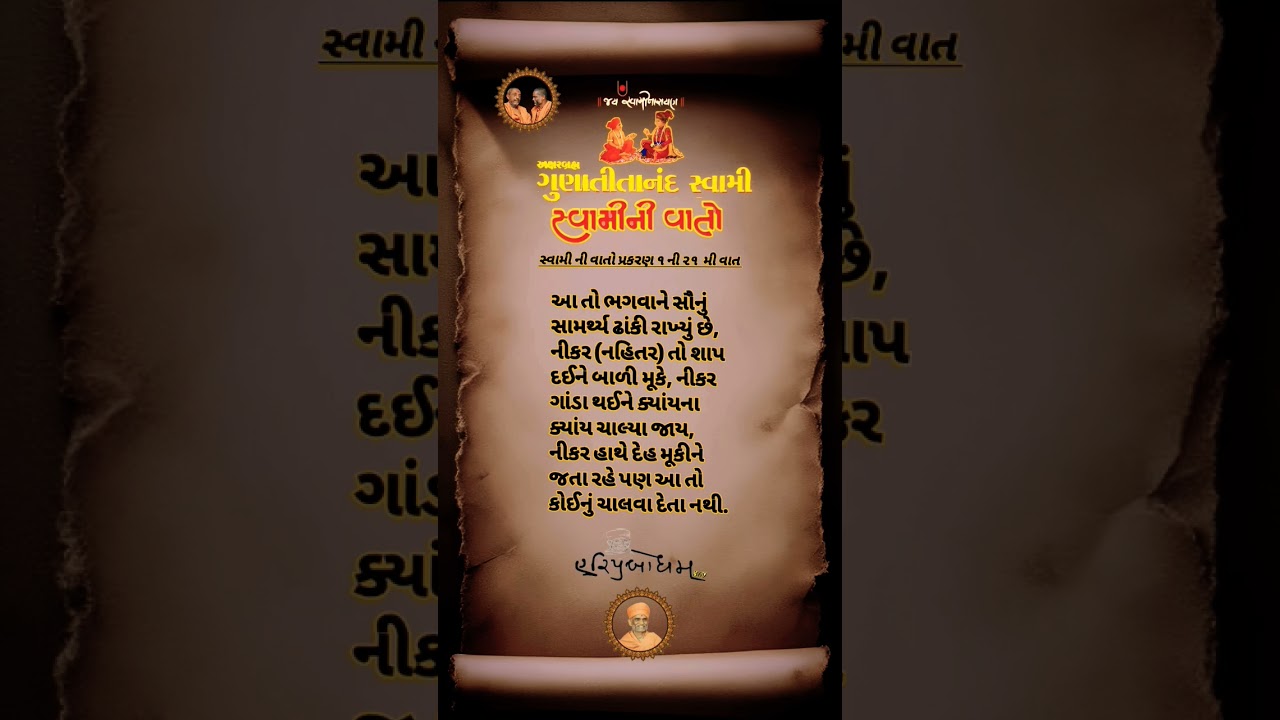 સ્વામી
મી વાત
॥ જય સ્વામિનારાયણ ॥
અક્ષરબ્રહ્મ
ગુણાતીતાનંદ સ્વામી
સ્વામીની વાતો
સ્વામી ની વાતો પ્રકરણ ૧ ની ૨૧ મી વાત
આ તો ભગવાને સૌનું
સામર્થ્ય ઢાંકી રાખ્યું છે,
નીકર (નહિતર) તો શાપ
દઈને બાળી મૂકે, નીકર
ગાંડા થઈને ક્યાંયના
ક્યાંય ચાલ્યા જાય,
નીકર હાથે દેહ મૂકીને
જતા રહે પણ આ તો
કોઈનું ચાલવા દેતા નથી.
હરિપ્રબોધમ